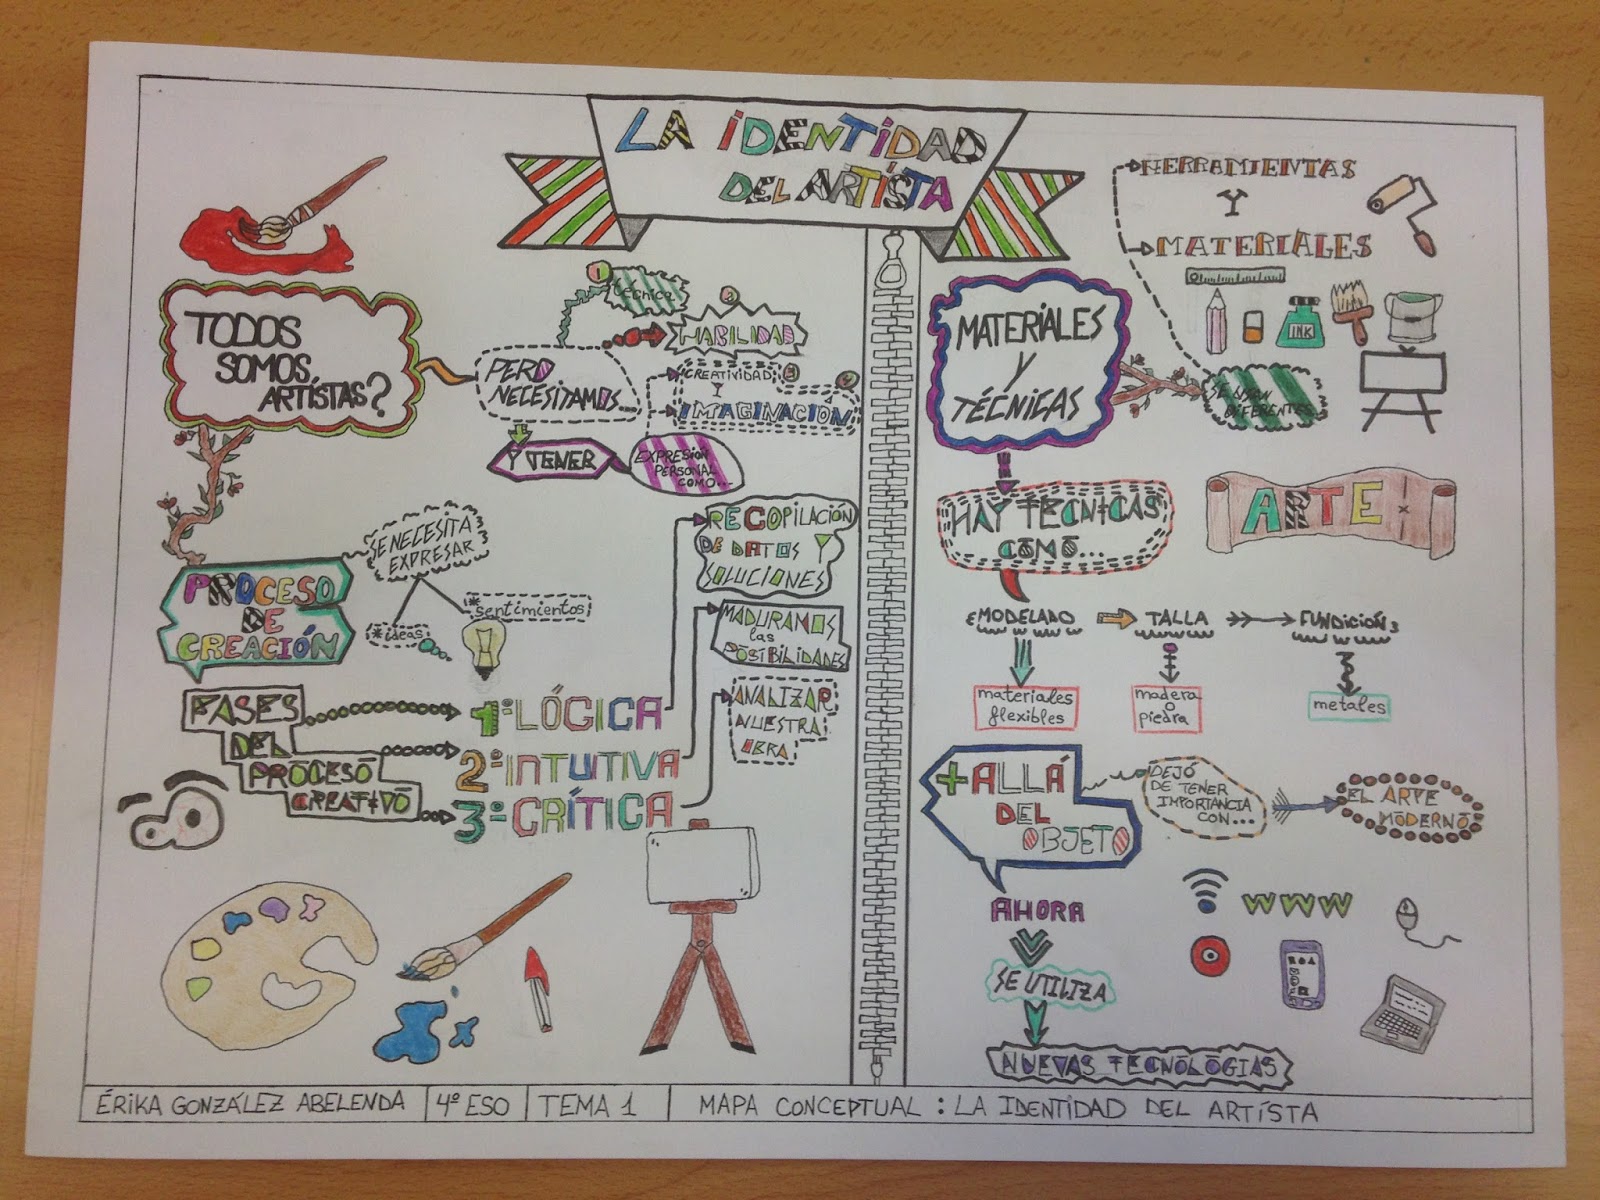 LA IDENTIDAD
DEL ARTÍSTA
TODOS
SOMOS
ARTÍSTAS?
PERO
NECESITAMOS...
1
técnica
2
HABILIDAD
CREATIVIDAD
3
Y
4
IMAGINACIÓN
Y TENER
EXPRESIÓN
PERSONAL
COMO...
PROCESO
DE
CREACIÓN
SE NECESITA
EXPRESAR
*ideas
*sentimientos
FASES
DEL
PROCESO
CREATIVO
1ª LÓGICA
2ª INTUITIVA
3ª CRÍTICA
RECOPILACIÓN
DE DATOS Y
SOLUCIONES
MADURAMOS
las
POSIBILIDADES
ANALIZAR
NUESTRA
OBRA
MATERIALES
Y
TÉCNICAS
SE USAN
DIFERENTES
HERRAMIENTAS
Y
MATERIALES
INK
ARTE
HAY TECNICAS
COMO...
MODELADO
TALLA
FUNDICIÓN
materiales
flexibles
madera
o
piedra
metales
+ALLÁ
DEL
OBJETO
DEJÓ
DE TENER
IMPORTANCIA
CON...
EL ARTE
MODERNO
AHORA
SE UTILIZA
NUEVAS TECNOLOGIAS
WWW
ÉRIKA GONZÁLEZ ABELENDA
4º ESO
TEMA 1
MAPA CONCEPTUAL : LA IDENTIDAD DEL ARTÍSTA